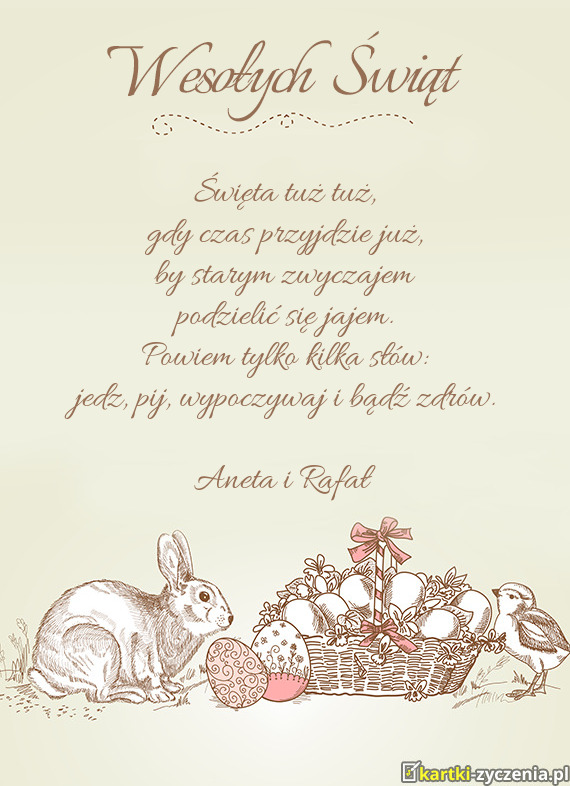 Wesołych Świąt
Święta tuż tuż,
gdy czas przyjdzie już,
by starym zwyczajem
podzielić się jajem.
Powiem tylko kilka słów:
jedz, pij, wypoczywaj i bądź zdrów.
Aneta i Rafał
kartki-zyczenia.pl